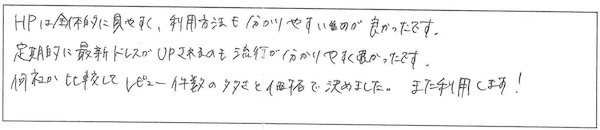 HPは全体的に見やすく、利用方法も分かりやすいものが良かったです。
定期的に最新ドレスがUPされるのも流行が分かりやすく良かったです。
何社か比較してレビュー件数の多さと価格で決めました。また利用します！